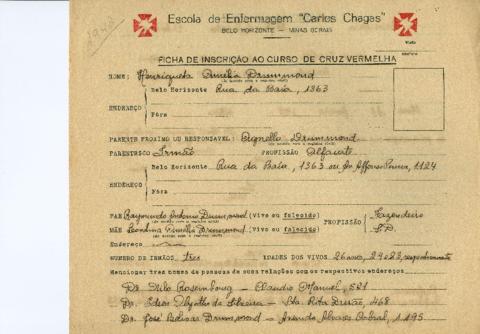 1943
Escola de Enfermagem "Carlos Chagas"
BELO HORIZONTE — MINAS GERAIS
FICHA DE INSCRIÇÃO AO CURSO DE CRUZ VERMELHA
NOME: Henriqueta Amelia Drummond
Belo Horizonte Rua da Baía, 1363
ENDEREÇO
Fóra
PARENTE PROXIMO OU RESPONSAVEL: Agnello Drummond
PARENTESCO Irmão PROFISSÃO Alfaiate
Belo Horizonte Rua da Baía, 1363 ou Av. Affonso Penna, 1124
ENDEREÇO
Fóra
PAE Raymundo Drummond (Vivo ou falecido) PROFISSÃO Fazendeiro
MÃE Amelia Drummond (Vivo ou falecido)
Endereço
NUMERO DE IRMÃOS três IDADES DOS VIVOS 26 anos,
Mencionar tres nomes de pessoas de suas relações com os respectivos endereços
Dr. Nilo Rosemburg — Claudio Manuel, 521
Dr. de Oliveira — Sta. Rita Durão, 468
Dr. José Bolivar Drummond — Avenida Alvares Cabral, 1195